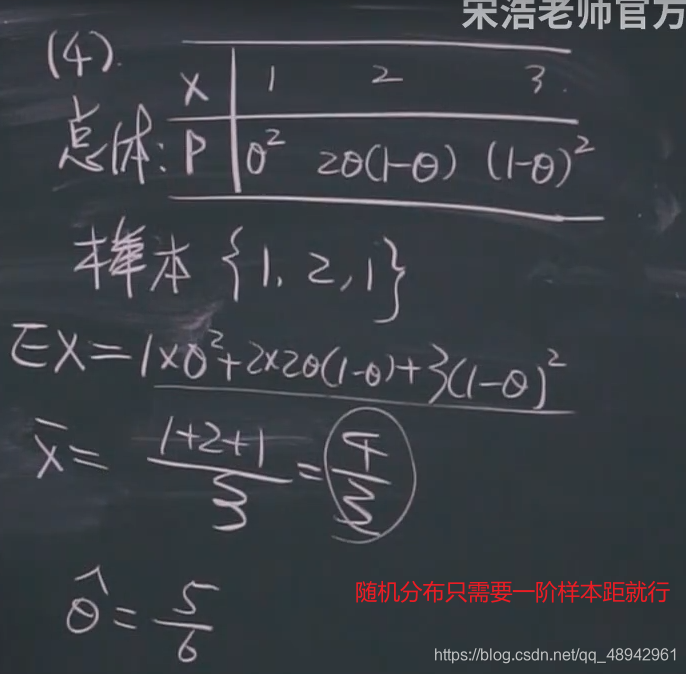 宋浩老师官方
(4).
X 1 2 3.
总体: P θ² 2θ(1-θ) (1-θ)²
样本 {1, 2, 1}
EX = 1×θ²+2×2θ(1-θ)+3(1-θ)²
x̄ = (1+2+1)/3 = 4/3
θ̂ = 5/6
随机分布只需要一阶样本距就行
https://blog.csdn.net/qq_48942961